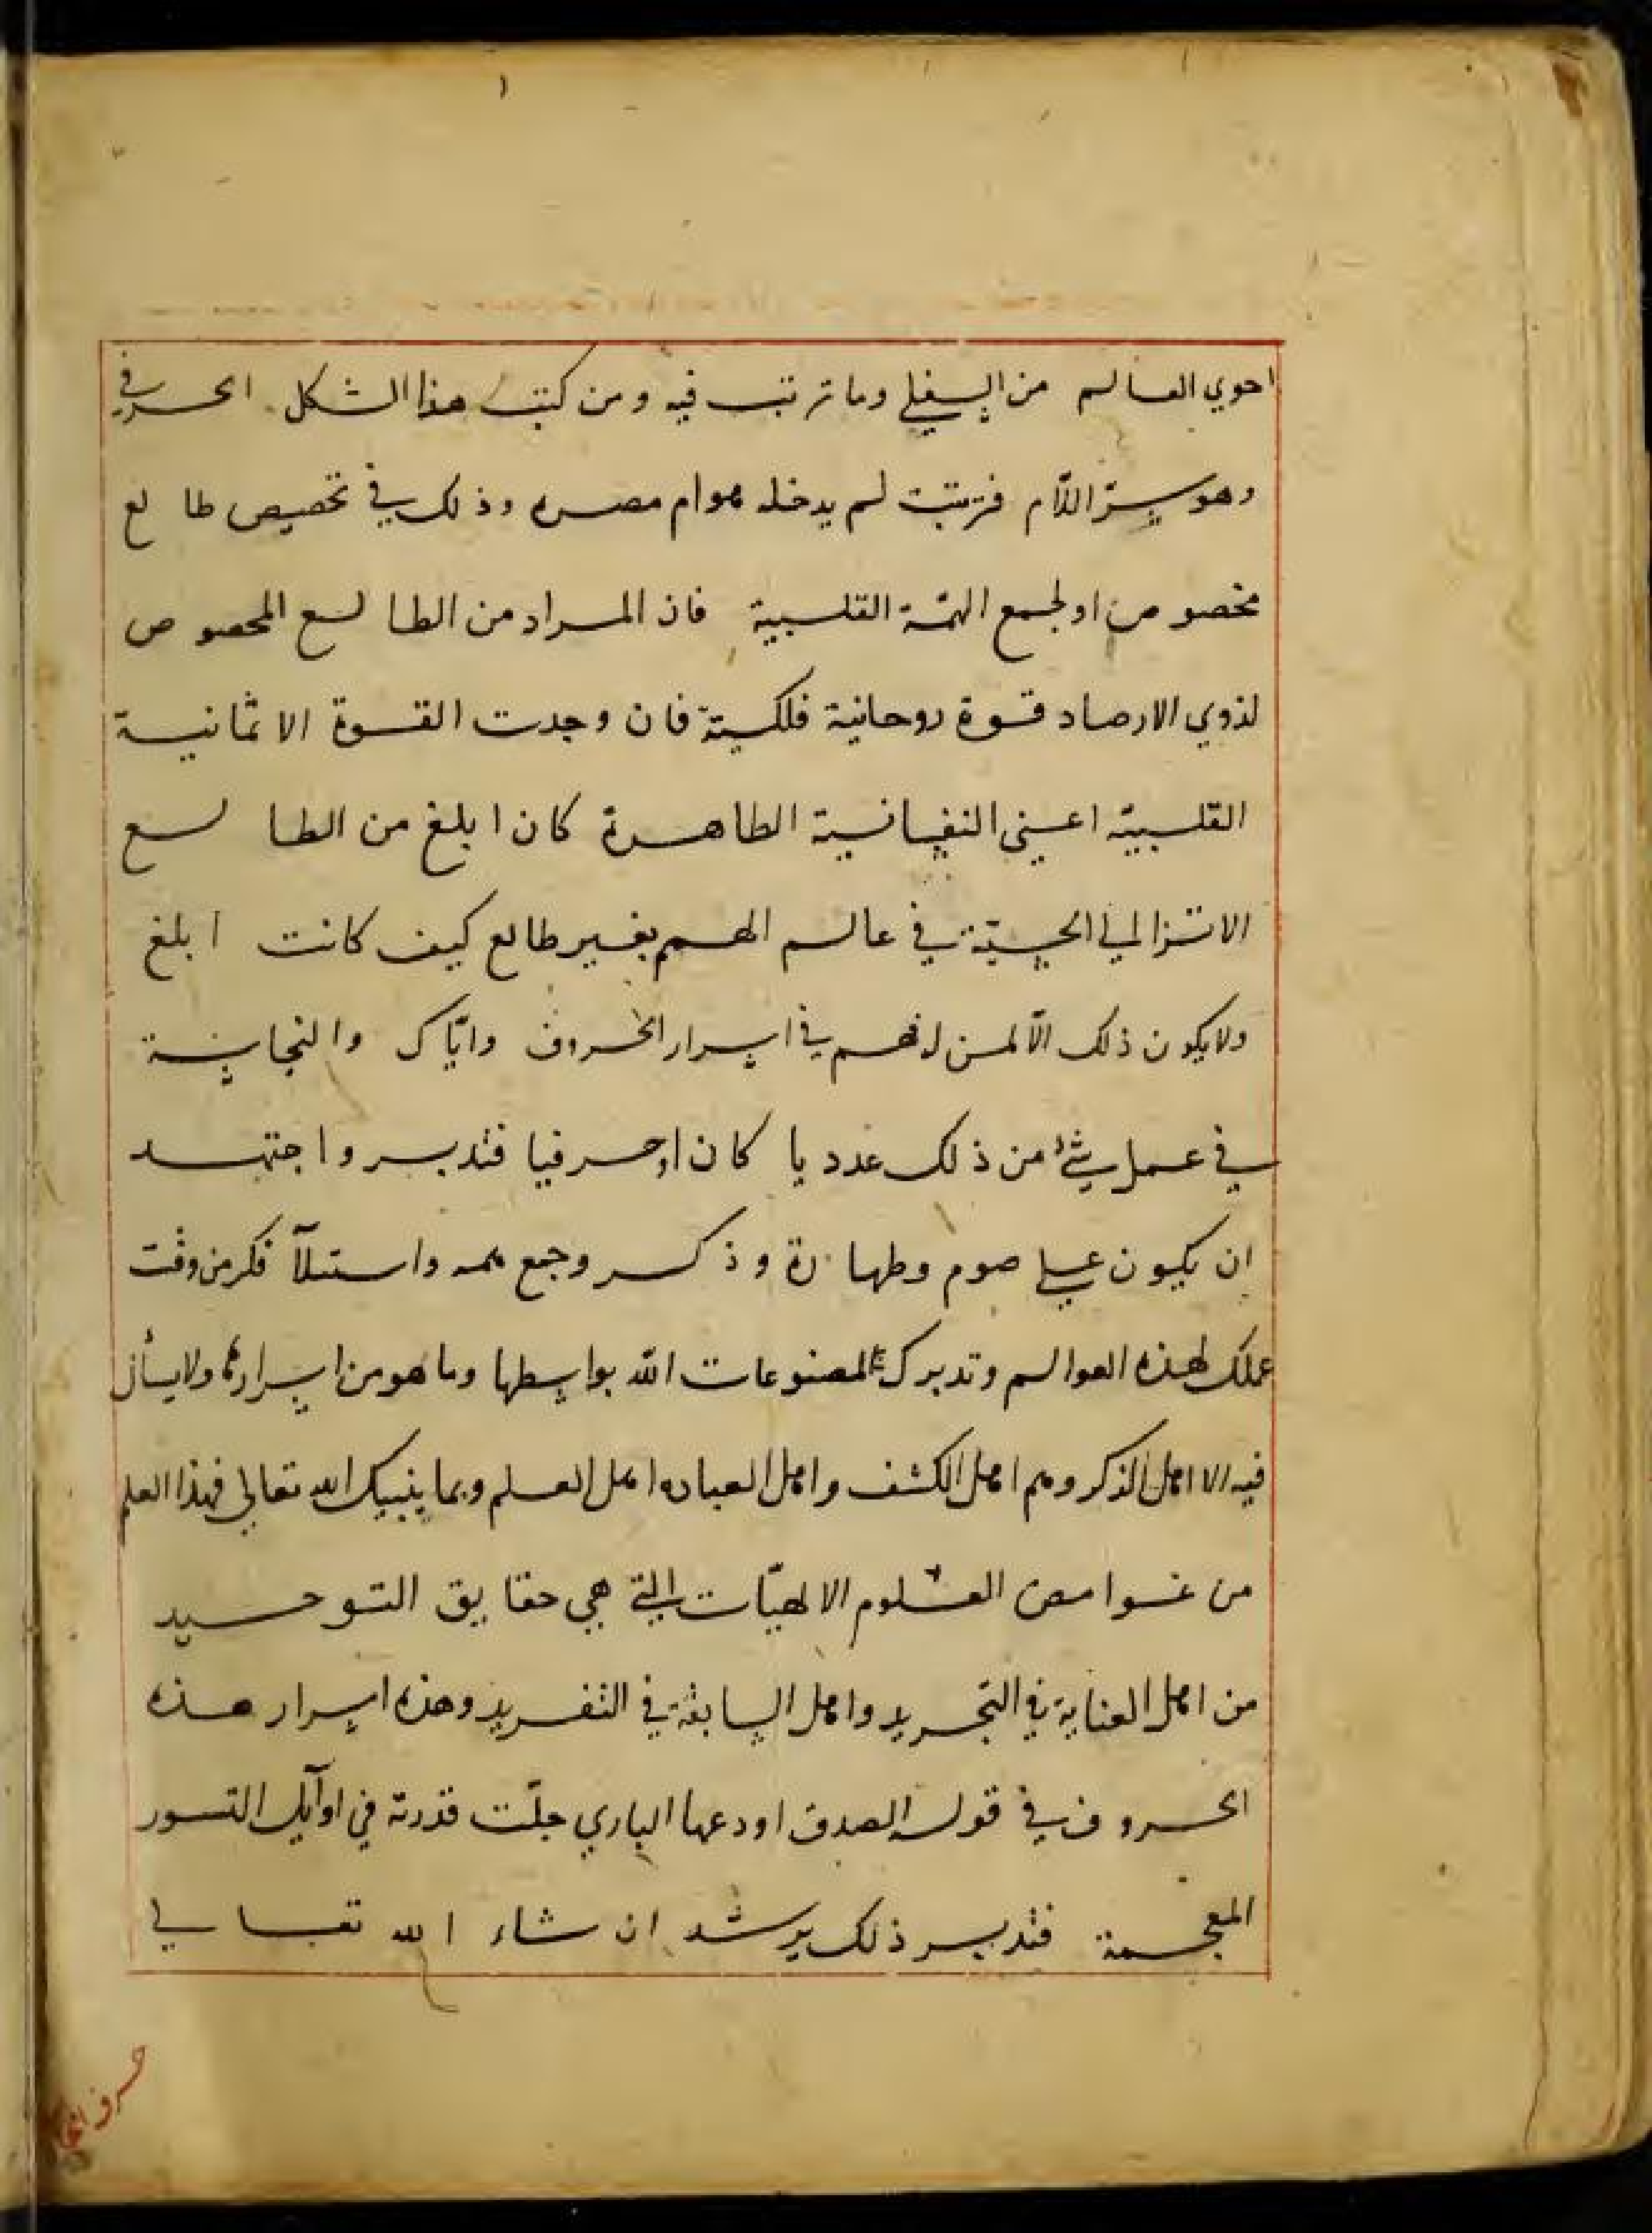 احوي العالم من السفلي وما ترتب فيه ومن كتب هذا الشكل الحرفي
وهو سرّ اللّام فترتبت لم يدخله هوام مصره وذلك في تخصيص طالع
مخصوص او لجمع الهمّة القلبية فان المراد من الطالع المخصوص
لذوي الارصاد قوة روحانية فلكيّة فان وجدت القوة الاثمانية
القلبيّة اعني النفسانية الطاهرة كان ابلغ من الطالع
الانزالي الحسيّة في عالم الهمم بغير طالع كيف كانت ابلغ
ولا يكون ذلك الّا لمن له فهم في اسرار الحروف وايّاك والنجاسة
في عمل شئ من ذلك عدديا كان او حرفيا فتدبر واجتهد
ان يكون علي صوم وطهارة وذكر وجمع همه واستلآ فكر من وقت
عملك لهذه العوالم وتدبرك لمصنوعات اللّه بواسطها وما هو من اسراره ولا يسأل
فيه الا اهل الذكر وهم اهل الكشف واهل العباده اهل العلم وبما ينبيك الله تعالي فهذا العلم
من غوامض العلوم الالهيّات التي هي حقايق التوحيد
من اهل العناية في التجريد واهل السابقة في التفريد وهذه اسرار هذه
الحروف في قوله الصدق اودعها الباري جلّت قدرته في اوآيل السور
المعجمة فتدبر ذلك يرشد ان شاء الله تعالي
حرف